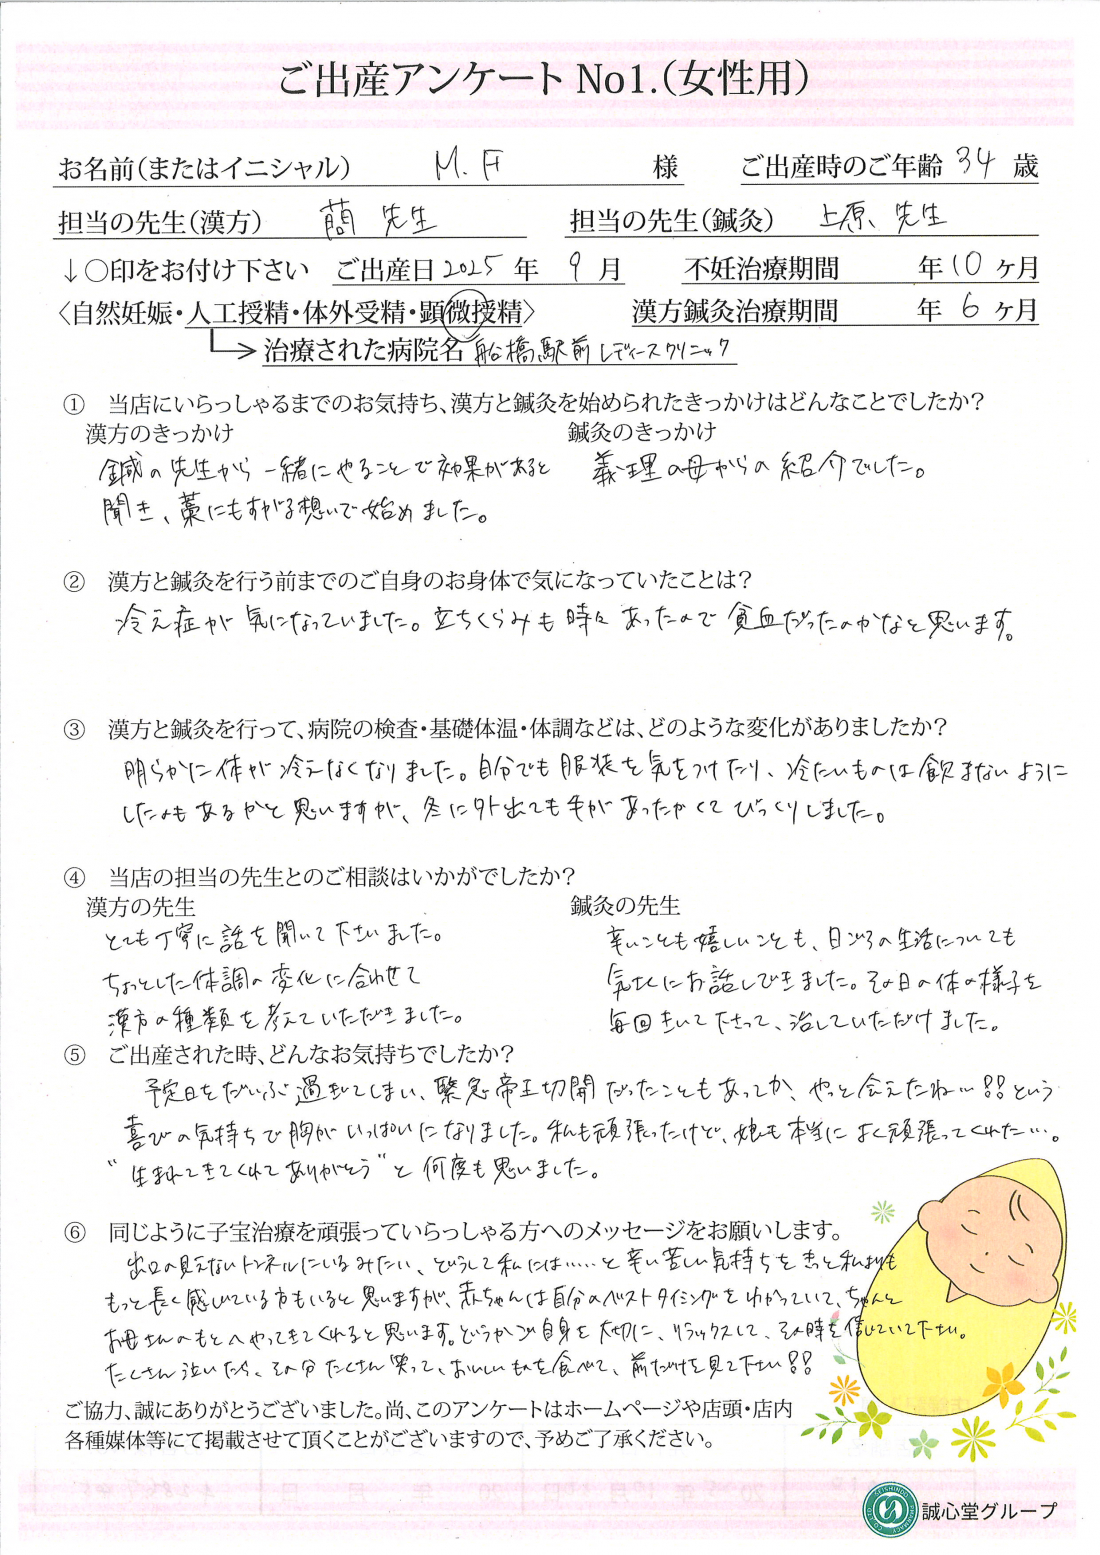 ご出産アンケート No1.(女性用)
お名前(またはイニシャル) M.F 様 ご出産時のご年齢 34 歳
担当の先生(漢方) 蕳 先生 担当の先生(鍼灸) 上原 先生
↓○印をお付け下さい ご出産日 2025 年 9 月 不妊治療期間 年 10 ヶ月
〈自然妊娠・人工授精・体外受精・顕微授精〉 漢方鍼灸治療期間 年 6 ヶ月
治療された病院名 船橋駅前レディースクリニック
① 当店にいらっしゃるまでのお気持ち、漢方と鍼灸を始められたきっかけはどんなことでしたか?
漢方のきっかけ
鍼の先生から一緒にやることで効果があると
聞き、藁にもすがる想いで始めました。
鍼灸のきっかけ
義理の母からの紹介でした。
② 漢方と鍼灸を行う前までのご自身のお身体で気になっていたことは?
冷え症が気になっていました。立ちくらみも時々あったので貧血だったのかなと思います。
③ 漢方と鍼灸を行って、病院の検査・基礎体温・体調などは、どのような変化がありましたか?
明らかに体が冷えなくなりました。自分でも服装を気をつけたり、冷たいものは飲まないように
したのもあるかと思いますが、冬に外出ても手があったかくてびっくりしました。
④ 当店の担当の先生とのご相談はいかがでしたか?
漢方の先生
とても丁寧に話を聞いて下さいました。
ちょっとした体調の変化に合わせて
漢方の種類を考えていただきました。
鍼灸の先生
辛いことも嬉しいことも、日ごろの生活についても
気さくにお話しできました。その日の体の様子を
毎回きいて下さって、治していただけました。
⑤ ご出産された時、どんなお気持ちでしたか?
予定日をだいぶ過ぎてしまい、緊急帝王切開だったこともあってか、やっと会えたね…!!という
喜びの気持ちで胸がいっぱいになりました。私も頑張ったけど、娘も本当によく頑張ってくれた…。
"生まれてきてくれてありがとう"と何度も思いました。
⑥ 同じように子宝治療を頑張っていらっしゃる方へのメッセージをお願いします。
出口の見えないトンネルにいるみたい、どうして私には……と辛い苦しい気持ちをきっと私よりも
もっと長く感じている方もいると思いますが、赤ちゃんは自分のベストタイミングをわかっていて、ちゃんと
お母さんのもとへやってきてくれると思います。どうかご自身を大切に、リラックスして、その時を信じていて下さい。
たくさん泣いたら、その分たくさん笑って、おいしいものを食べて、前だけを見て下さい!!
ご協力、誠にありがとうございました。尚、このアンケートはホームページや店頭・店内
各種媒体等にて掲載させて頂くことがございますので、予めご了承ください。
誠心堂グループ